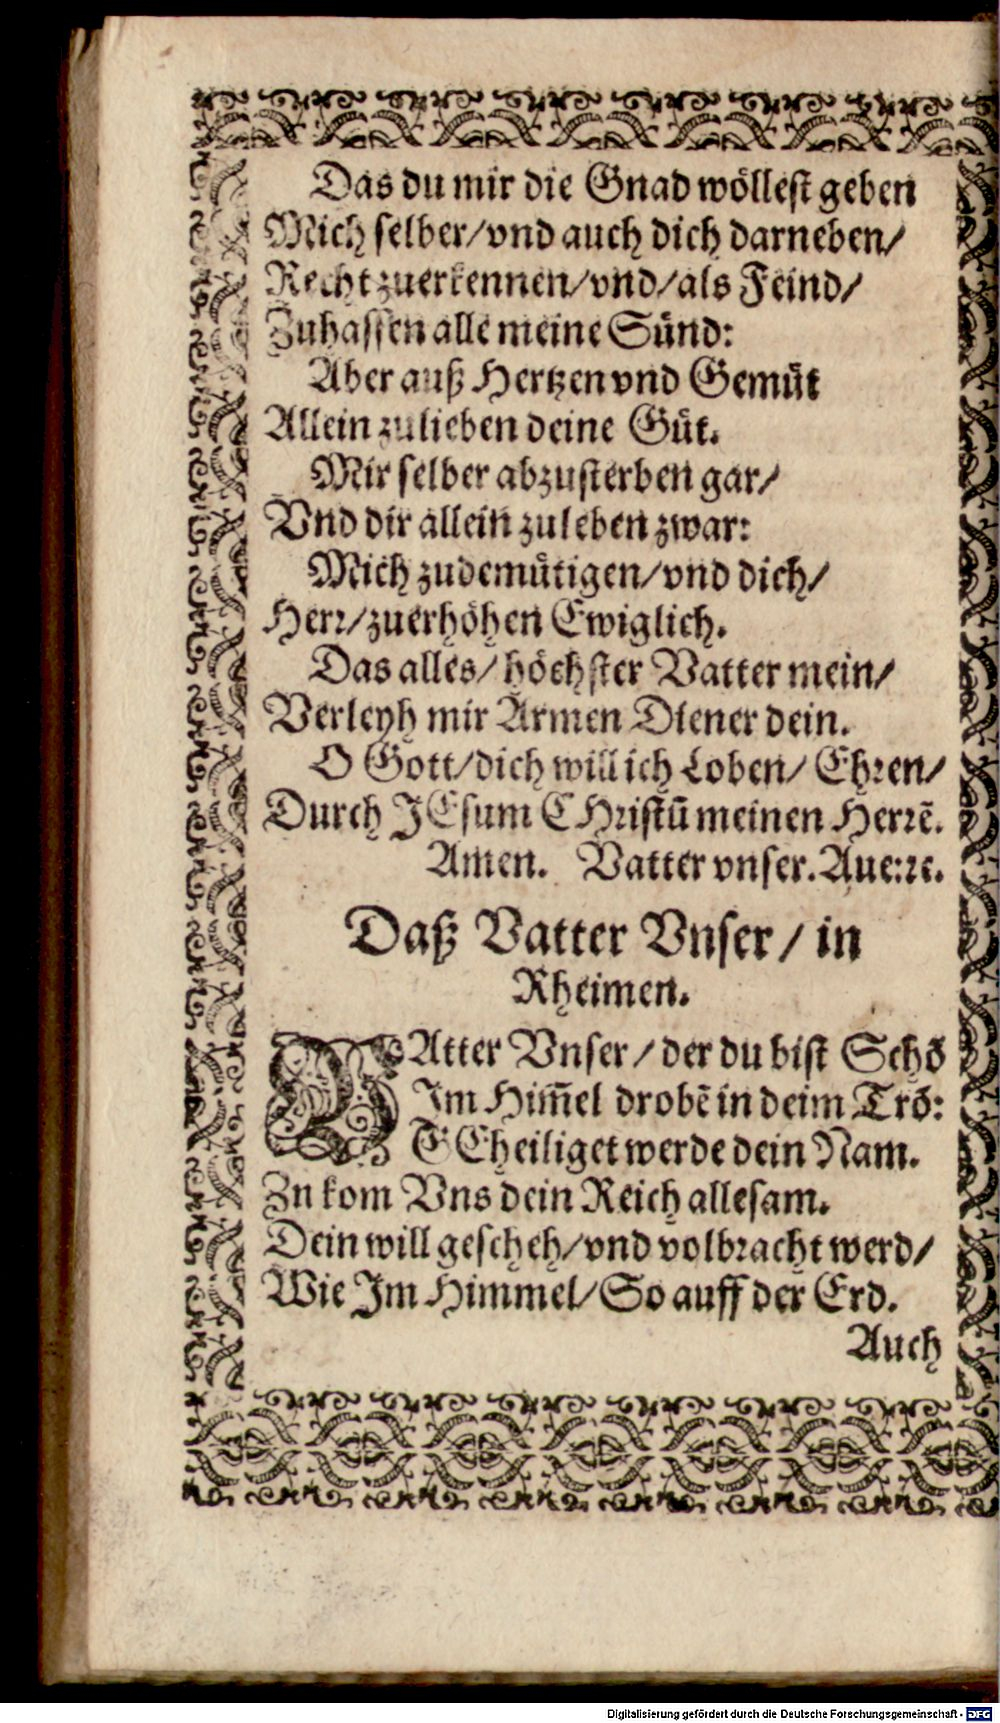 Das du mir die Gnad wöllest geben
Mich selber/vnd auch dich darneben/
Recht zuerkennen/vnd/als Feind/
Zuhassen alle meine Sünd:
Aber auß Hertzen vnd Gemüt
Allein zulieben deine Güt.
Mir selber abzusterben gar/
Vnd dir allein zuleben zwar:
Mich zudemütigen/vnd dich/
Herr/zuerhöhen Ewiglich.
Das alles/höchster Vatter mein/
Verleyh mir Armen Diener dein.
O Gott/dich will ich Loben/Ehren/
Durch JEsum CHristū meinen Herrē.
Amen. Vatter vnser. Aue:ꝛc.
Daß Vatter Vnser/in
Rheimen.
VAtter Vnser/der du bist Schō
Im Him̄el drobē in deim Trō:
GEheiliget werde dein Nam.
Zn kom Vns dein Reich allesam.
Dein will gescheh/vnd volbracht werd/
Wie Im Himmel/So auff der Erd.
Auch
Digitalisierung gefördert durch die Deutsche Forschungsgemeinschaft - DFG